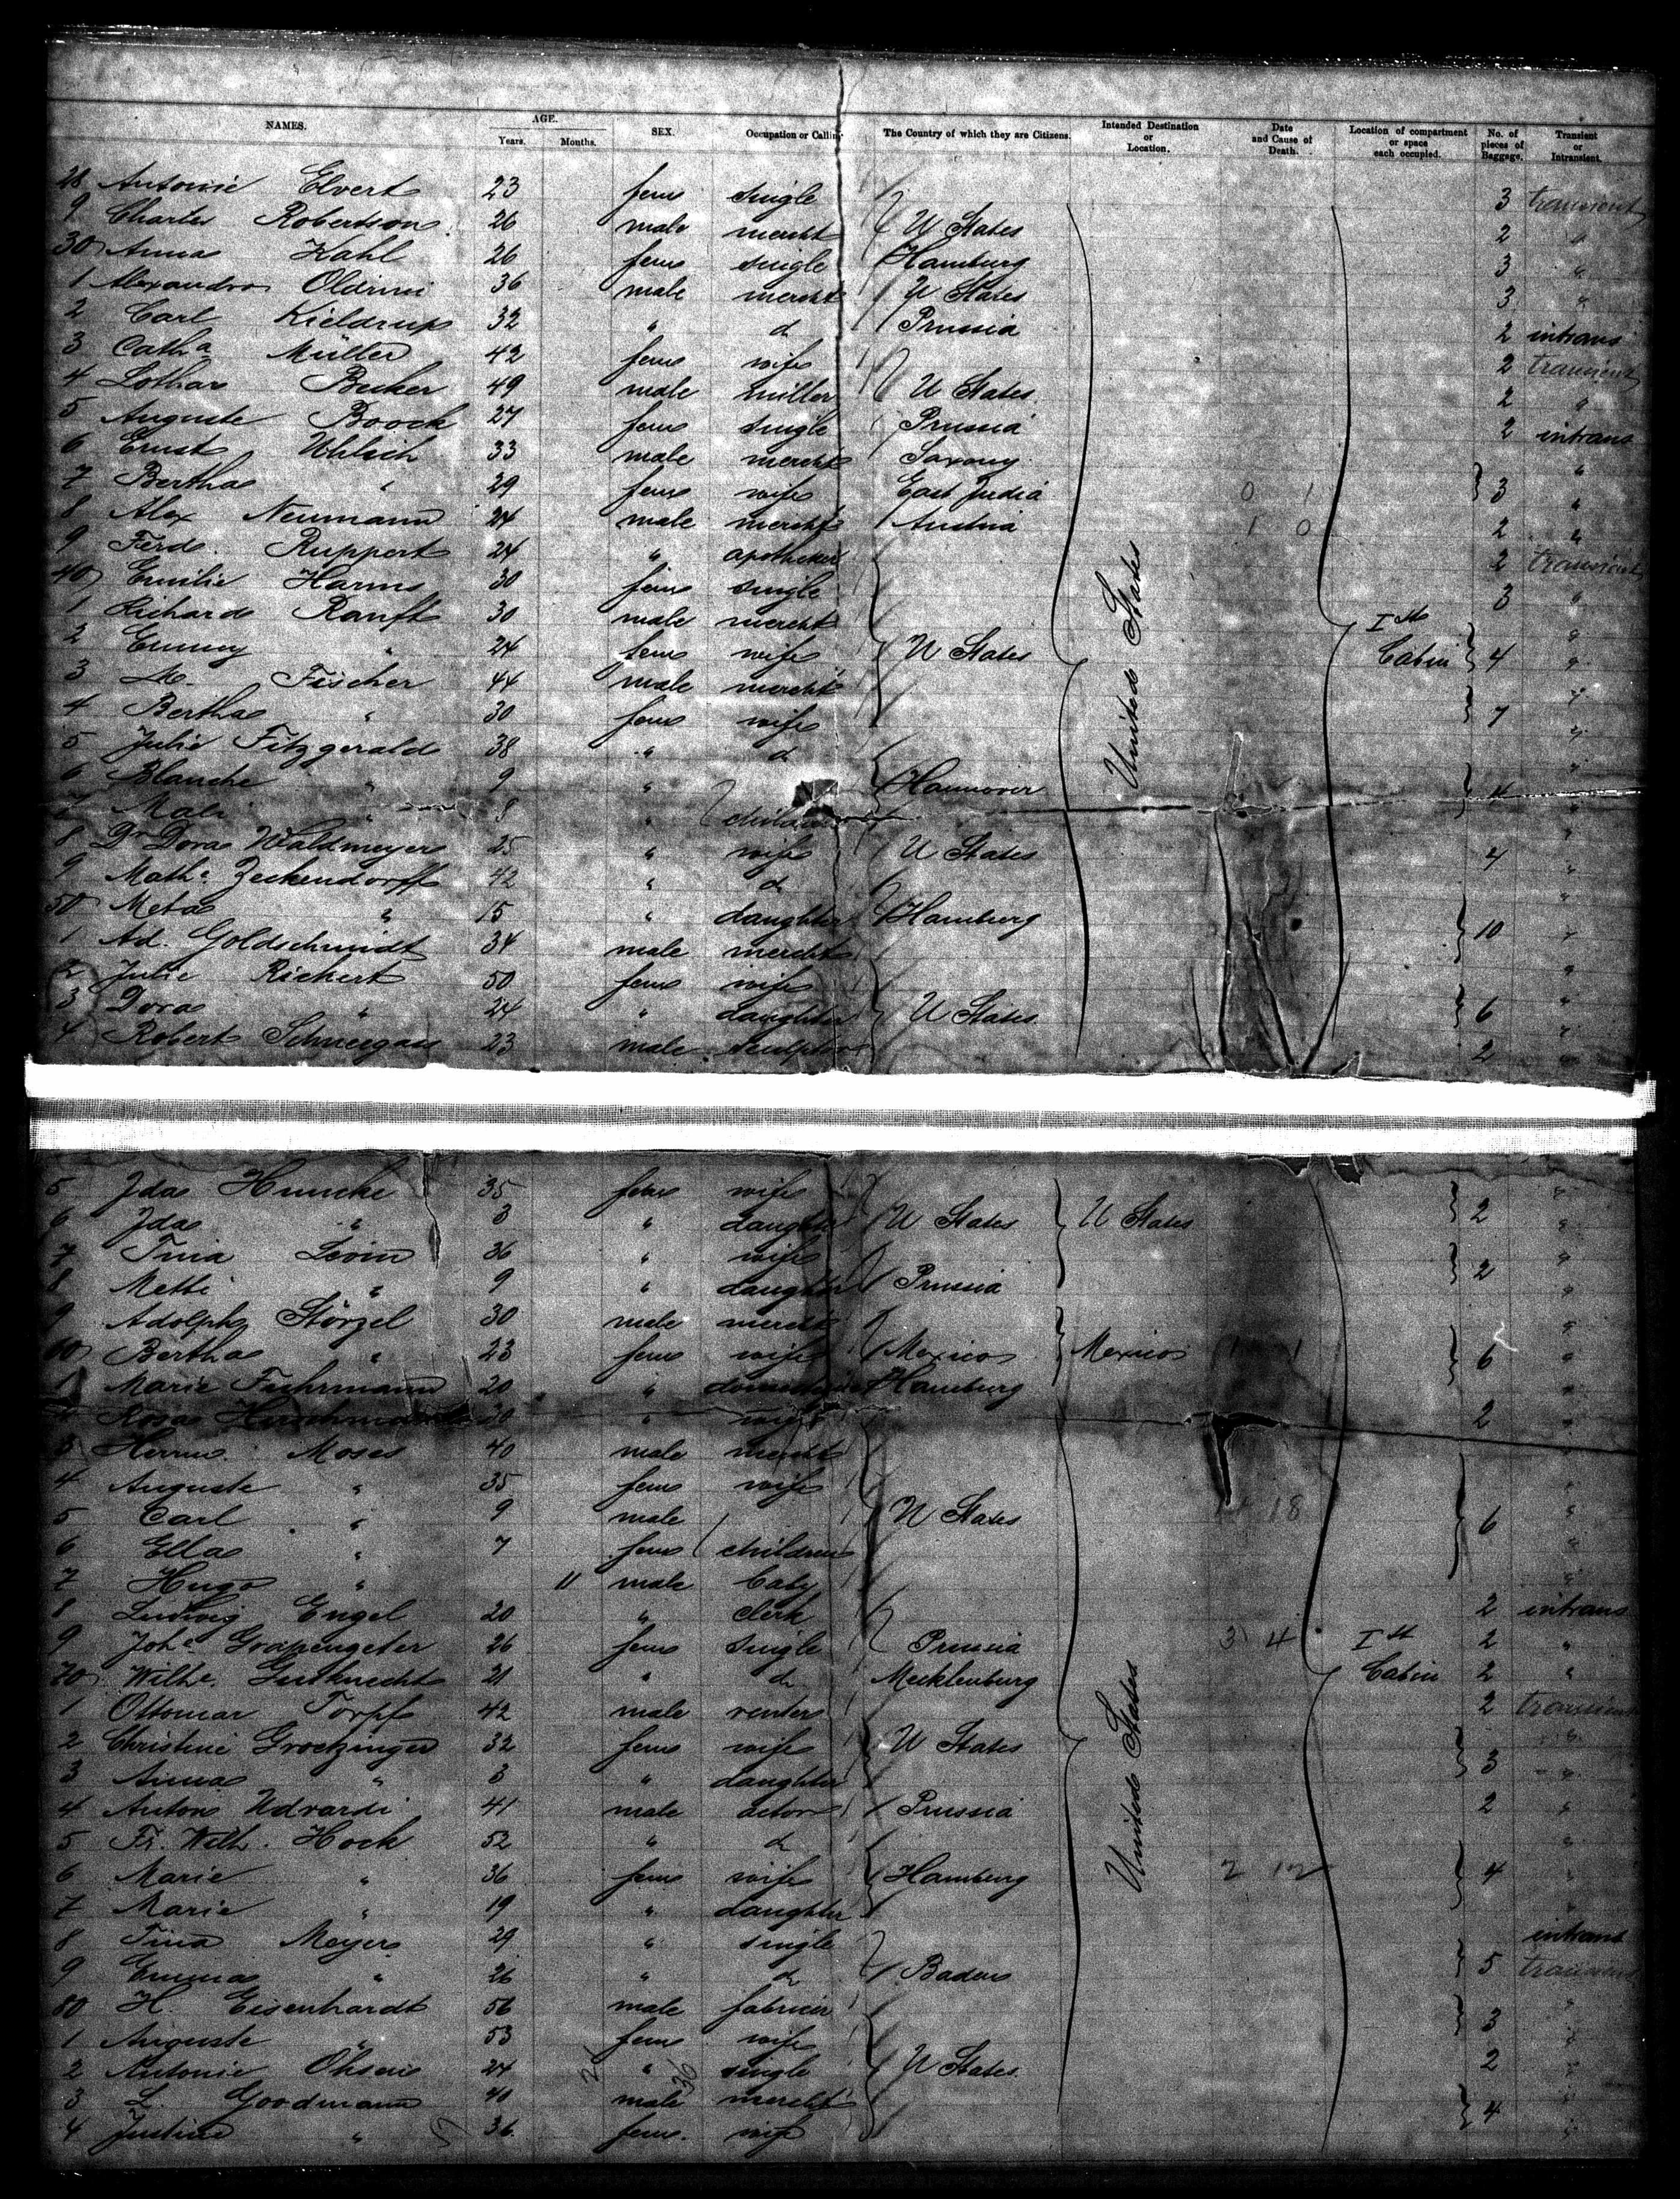 NAMES. AGE. Years. Months. SEX. Occupation or Calling The Country of which they are Citizens. Intended Destination or Location. Date and Cause of Death. Location of compartment or space each occupied. No. of pieces of Baggage. Transient or Intransient.
28 Antonie Elvert 23 fem single 3 transient
9 Charles Robertson 26 male mercht U States 2 "
30 Anna Kahl 26 fem single Hamburg 3 "
1 Alexandro Oldrini 36 male mercht U States 3 "
2 Carl Kieldrup 32 " d Prussia 2 intrans
3 Catha Müller 42 fem wife 2 transient
4 Lothar Becker 49 male miller U States 2 "
5 Auguste Boock 27 fem single Prussia 2 intrans
6 Ernst Uhlich 33 male mercht Saxony "
7 Bertha " 29 fem wife East India 0 1 3 "
8 Alex Neumann 24 male mercht Austria 1 0 2 "
9 Ferd. Ruppert 24 " apotheker 2 transient
40 Emilie Harms 30 fem single 3 "
1 Richard Ranft 30 male mercht "
2 Emmy " 24 fem wife U States United States Ist Cabin 4 "
3 M. Fischer 44 male mercht "
4 Bertha " 30 fem wife 7 "
5 Julie Fitzgerald 38 " d "
6 Blanche " 9 " Hannover 4 "
7 " 8 " children "
8 Dr Dora Waldmeyer 25 " wife U States 4 "
9 Mathe Zeckendorff 42 " d "
50 Meta " 15 " daughter Hamburg 10 "
1 Ad. Goldschmidt 34 male mercht "
2 Julie Rickert 50 fem wife "
3 Dora " 24 " daughter U States 6 "
4 Robert Schneegass 23 male sculptor 2 "
5 Ida Huncke 35 fem wife "
6 Ida " 3 " daughter U States U States 2 "
7 Tina Levin 36 " wife "
8 Metti " 9 " daughter Prussia 2 "
9 Adolph Störzel 30 male mercht "
60 Bertha " 23 fem wife Mexico Mexico 1 1 6 "
1 Marie Fuhrmann 20 " Hamburg "
Rosa 30 " wife 2 "
3 Herrm. Moses 40 male mercht "
4 Auguste " 35 fem wife "
5 Carl " 9 male U States 18 6 "
6 Ella " 7 fem children "
7 Hugo " 11 male baby "
8 Ludwig Engel 20 " clerk 2 intrans
9 Johe Grapengeter 26 fem single Prussia 3 4 Ist Cabin 2 "
70 Wilhe. Gutknecht 21 " d Mecklenburg 2 "
1 Ottomar Torpf 42 male renter 2 transient
2 Christine Groetzinger 32 fem wife U States United States "
3 Anna " 3 " daughter 3 "
4 Anton Udvardi 41 male actor Prussia 2 "
5 Fr. Wilh. Hock 52 " d "
6 Marie " 36 fem wife Hamburg 2 12 4 "
7 Marie " 19 " daughter "
8 Tina Meyer 29 " single intrans
9 Emma " 26 " d Baden 5 transient
80 H. Eisenhardt 56 male "
1 Auguste " 53 fem wife 3 "
2 Antonie 24 " single U States 2 "
3 L. Goodmann 40 male mercht "
4 Justine " 36 fem. wife 4 "